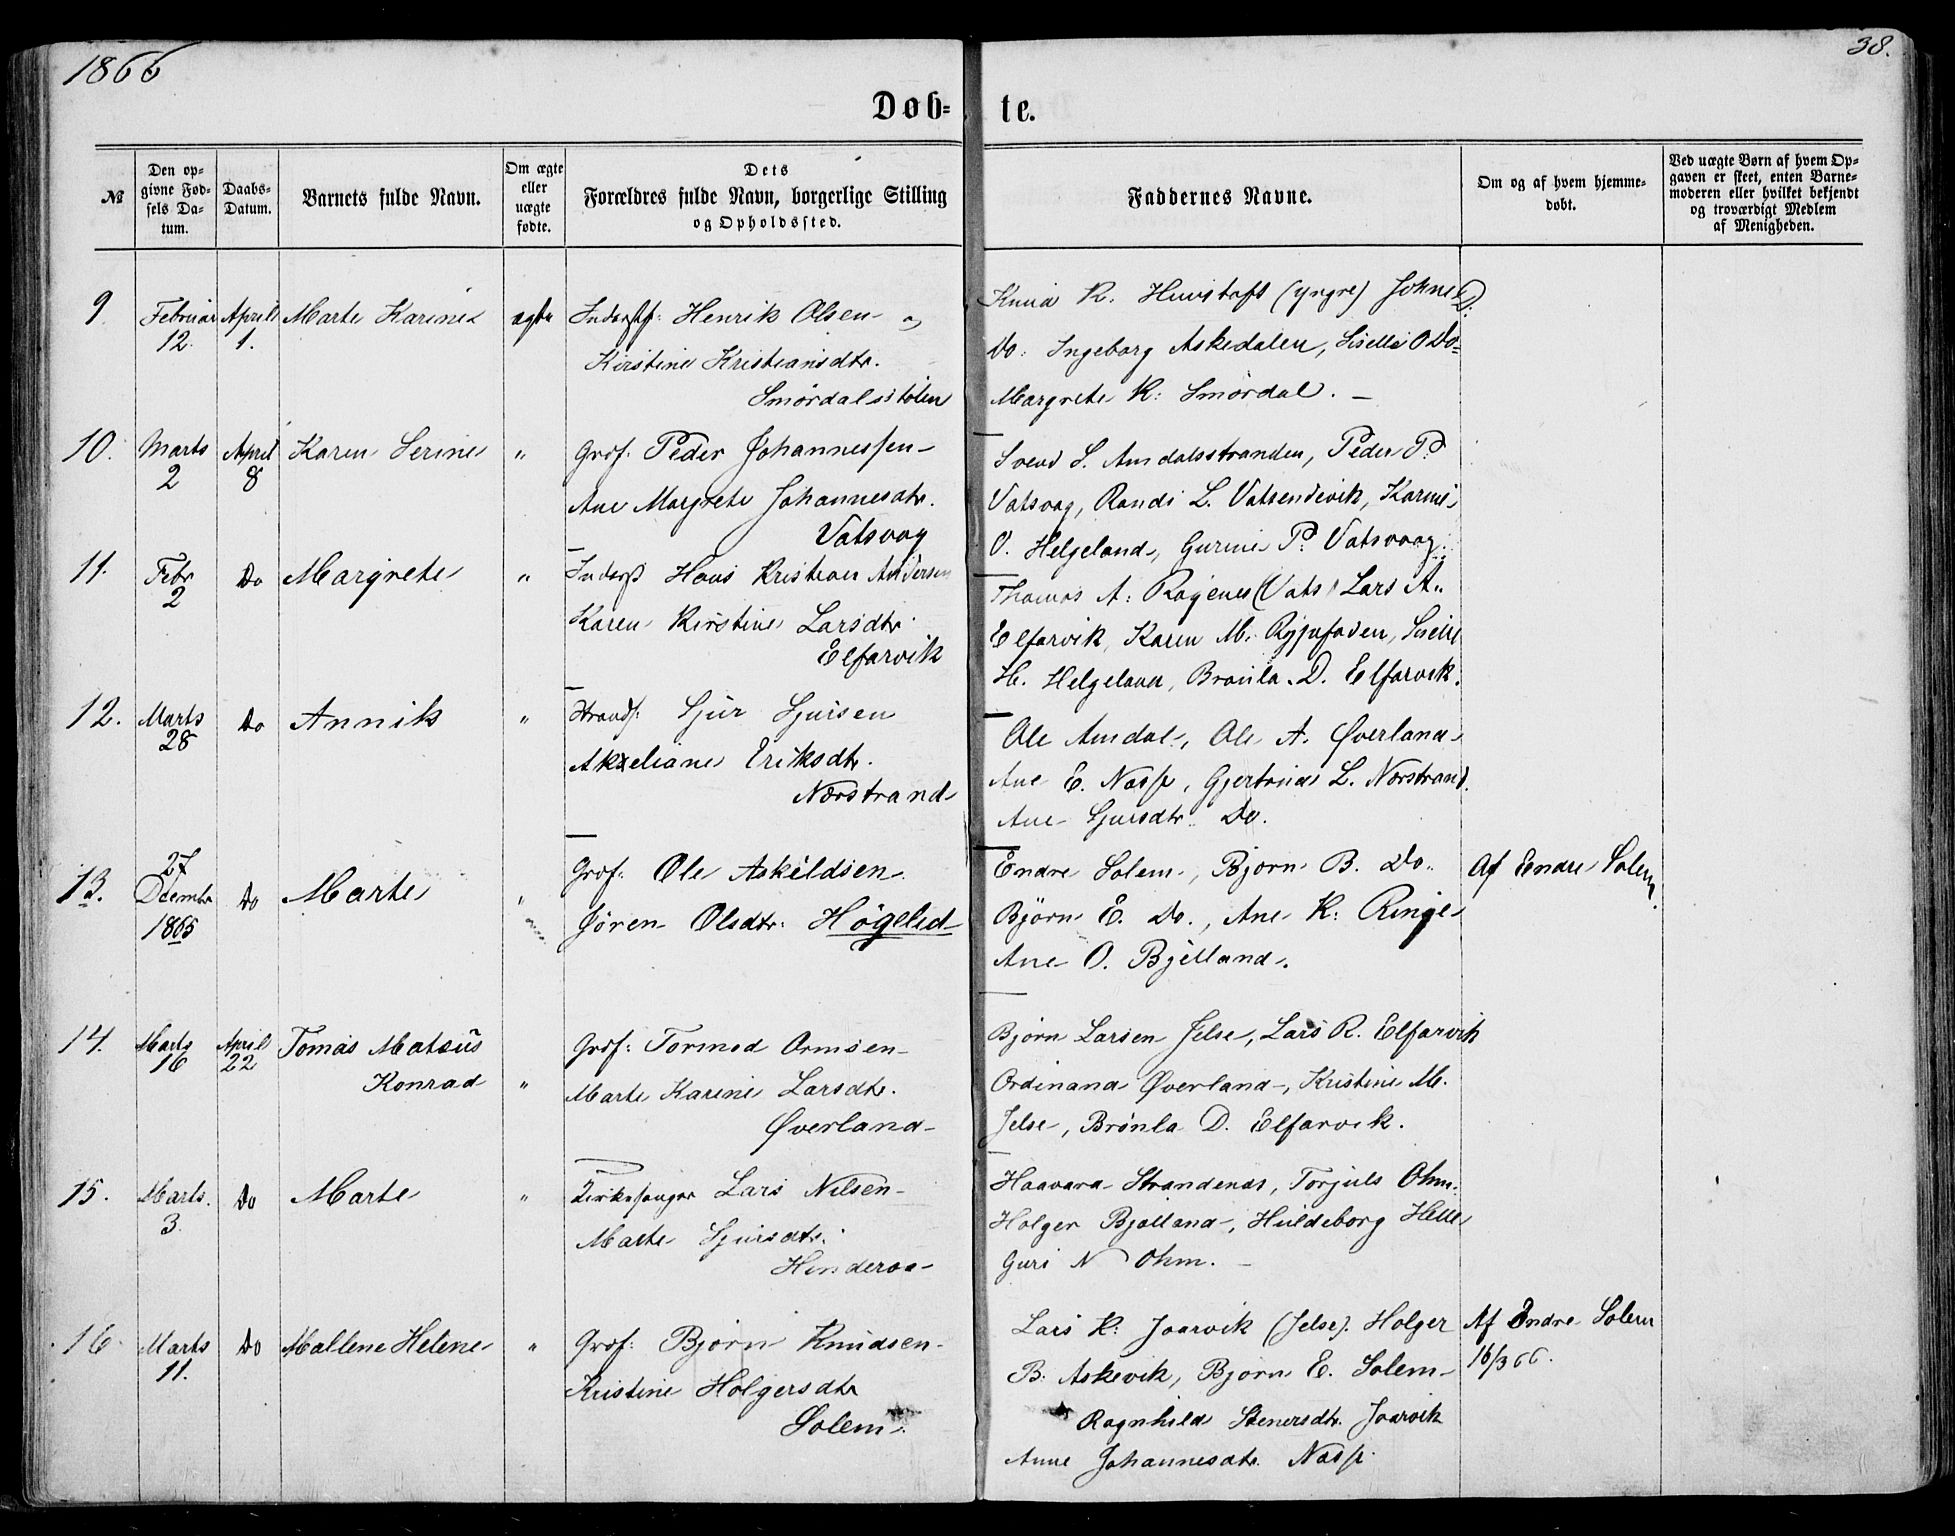 1866
38.
Døb-
te.
№
Den op-
givne Fød-
sels Da-
tum.
Daabs-
Datum.
Barnets fulde Navn.
Om ægte
eller
uægte
fødte.
Dets
Forældres fulde Navn, borgerlige Stilling
og Opholdssted.
Faddernes Navne.
Om og af hvem hjemme-
døbt.
Ved uægte Børn af hvem Op-
gaven er skeet, enten Barne-
moderen eller hvilket bekjendt
og troværdigt Medlem
af Menigheden.
9. Februar 12. April 1. Marte Karine ægte
Henrik Olsen og
Kirstine Kristiansdtr.
Smørdalsstølen
Knud R. (yngre) Johne D.
Do: Ingeborg Askedalen, Siselle O Do=
Margrete K: Smørdal. —
10. Marts 2 April 8 Karen Serine "
Grdf: Peder Johannessen
Ane Margrete Johannesdtr.
Vatsvag
Svend S. Amdalsstranden, Peder P.
Vatsvag, Randi L. Vatsendevik, Karine
O. Helgeland, Gurine P. Vatsvaag.
11. Febr 2 Do Margrete "
Inderst Hans Kristian Andersen
Karen Kirstine Larsdtr.
Elfarvik
Thomas A: Ragenes (Vats) Lars A.
Elfarvik, Karen M. Siselle
H. Helgeland, Bronla D. Elfarvik.
12. Marts 28 Do Annik "
Strands: Sjur Sjursen
Akzeliane Eriksdtr.
Nærstrand
Ole Amdal, Ole A. Øverland
Ane E. Næss, Gjertrude L. Nærstrand.
Ane Sjursdtr. Do.
13. 27 Decembr 1865 Do Marte "
Grdf: Ole Askildsen
Jøren Olsdtr: Høgelid
Endre Solem, Bjørn B. Do.
Bjørn E. Do., Ane K: Ringe
Ane O. Bjelland.
Af Endre Solem.
14. Marts 16 April 22 Tomas Mateus
Konrad "
Grdf: Tormod Ormsen
Marte Karine Larsdtr.
Øverland
Bjørn Larsen Jelse, Lars R. Elfarvik
Ordinand Øverland, Kristine M.
Jelse, Brønla D. Elfarvik.
15. Marts. 3. Do Marte "
Kirkesanger Lars Nilsen
Marte Sjursdtr.
Hinderaa
Haavard Strandenæs, Torjuls Ohm.
Holger Bjelland, Huldeborg Helle
Guri N Ohm. —
16. Marts 11. Do Mallene Helene "
Grdf: Bjørn Knudsen
Kristine Holgersdtr
Solem.
Lars K: Jaarvik (Jelse). Holger
B. Askevik, Bjørn E. Solem
Ragnhild Stenersdtr. Jaarvik
Anne Johannesdtr. Næss.
Af Endre Solem
16/3 66.